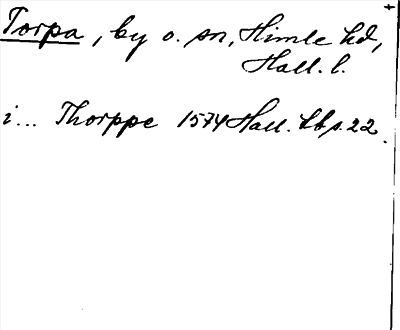 Torpa, by o. sn, Himle hd,
Hall. l.
i... Thorppe 1574 Hall. hb s. 22.